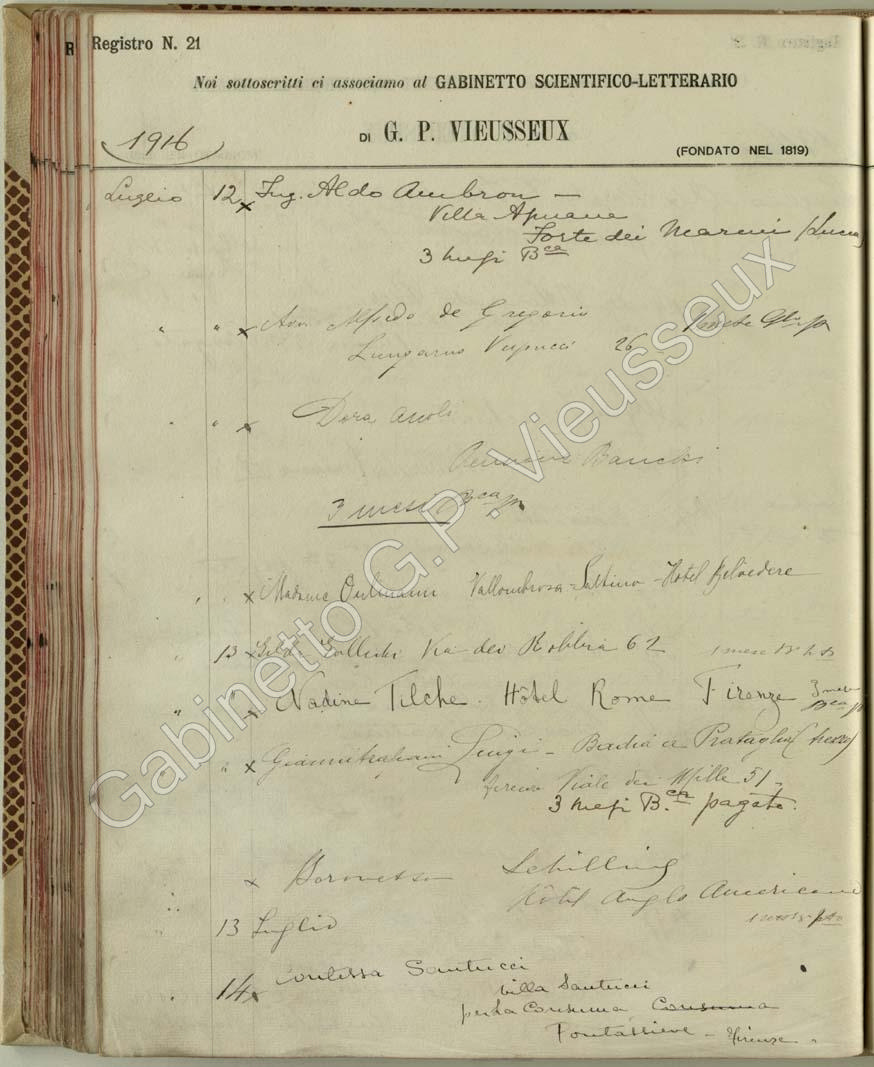 R
Registro N. 21
Noi sottoscritti ci associamo al GABINETTO SCIENTIFICO-LETTERARIO
1916
DI G. P. VIEUSSEUX
(FONDATO NEL 1819)
Luglio 12 x Ing. Aldo Ambron —
Villa Apuana
Forte dei Marmi (Lucca)
3 mesi Bca
" " x Avv. Alfredo de Gregorio
Lungarno Vespucci 26
" " x Dora
Bauchi
3 mesi Bca
" " x Madame Vallombrosa - Saltino - Hotel Belvedere
" 13 x Via dei Robbia 62 1 mese
" " x Nadine Tilche. Hôtel Rome Firenze 3 mesi
Bca
" " x Luigi - Badia a Prataglia (Arezzo)
Firenze Viale dei Mille 51 -
3 mesi B.ca pagato.
x Baronessa Schilling
Hôtel Anglo Americano
13 Luglio
14 x Contessa Santucci
Villa Santucci
per la Consuma Consuma
Pontassieve - Firenze.
Gabinetto G.P. Vieusseux